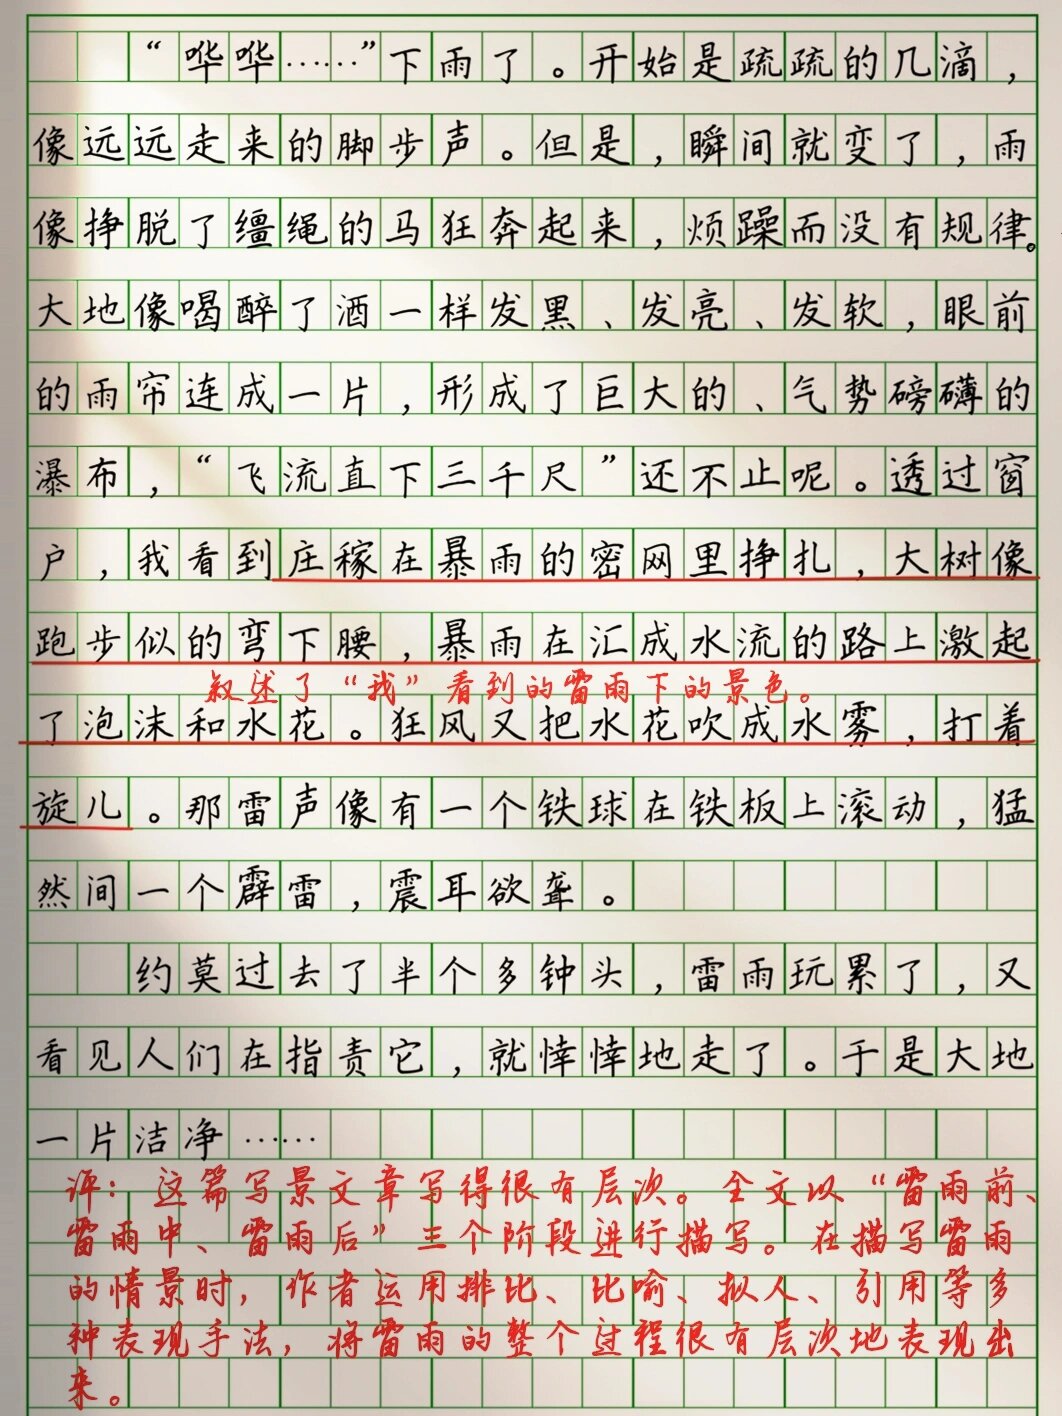 “哗哗……”下雨了。开始是疏疏的几滴，
像远远走来的脚步声。但是，瞬间就变了，雨
像挣脱了缰绳的马狂奔起来，烦躁而没有规律。
大地像喝醉了酒一样发黑、发亮、发软，眼前
的雨帘连成一片，形成了巨大的、气势磅礴的
瀑布，“飞流直下三千尺”还不止呢。透过窗
户，我看到庄稼在暴雨的密网里挣扎，大树像
跑步似的弯下腰，暴雨在汇成水流的路上激起
叙述了“我”看到的雷雨下的景色。
了泡沫和水花。狂风又把水花吹成水雾，打着
旋儿。那雷声像有一个铁球在铁板上滚动，猛
然间一个霹雷，震耳欲聋。
约莫过去了半个多钟头，雷雨玩累了，又
看见人们在指责它，就悻悻地走了。于是大地
一片洁净……
评：这篇写景文章写得很有层次。全文以“雷雨前、
雷雨中、雷雨后”三个阶段进行描写。在描写雷雨
的情景时，作者运用排比、比喻、拟人、引用等多
种表现手法，将雷雨的整个过程很有层次地表现出
来。